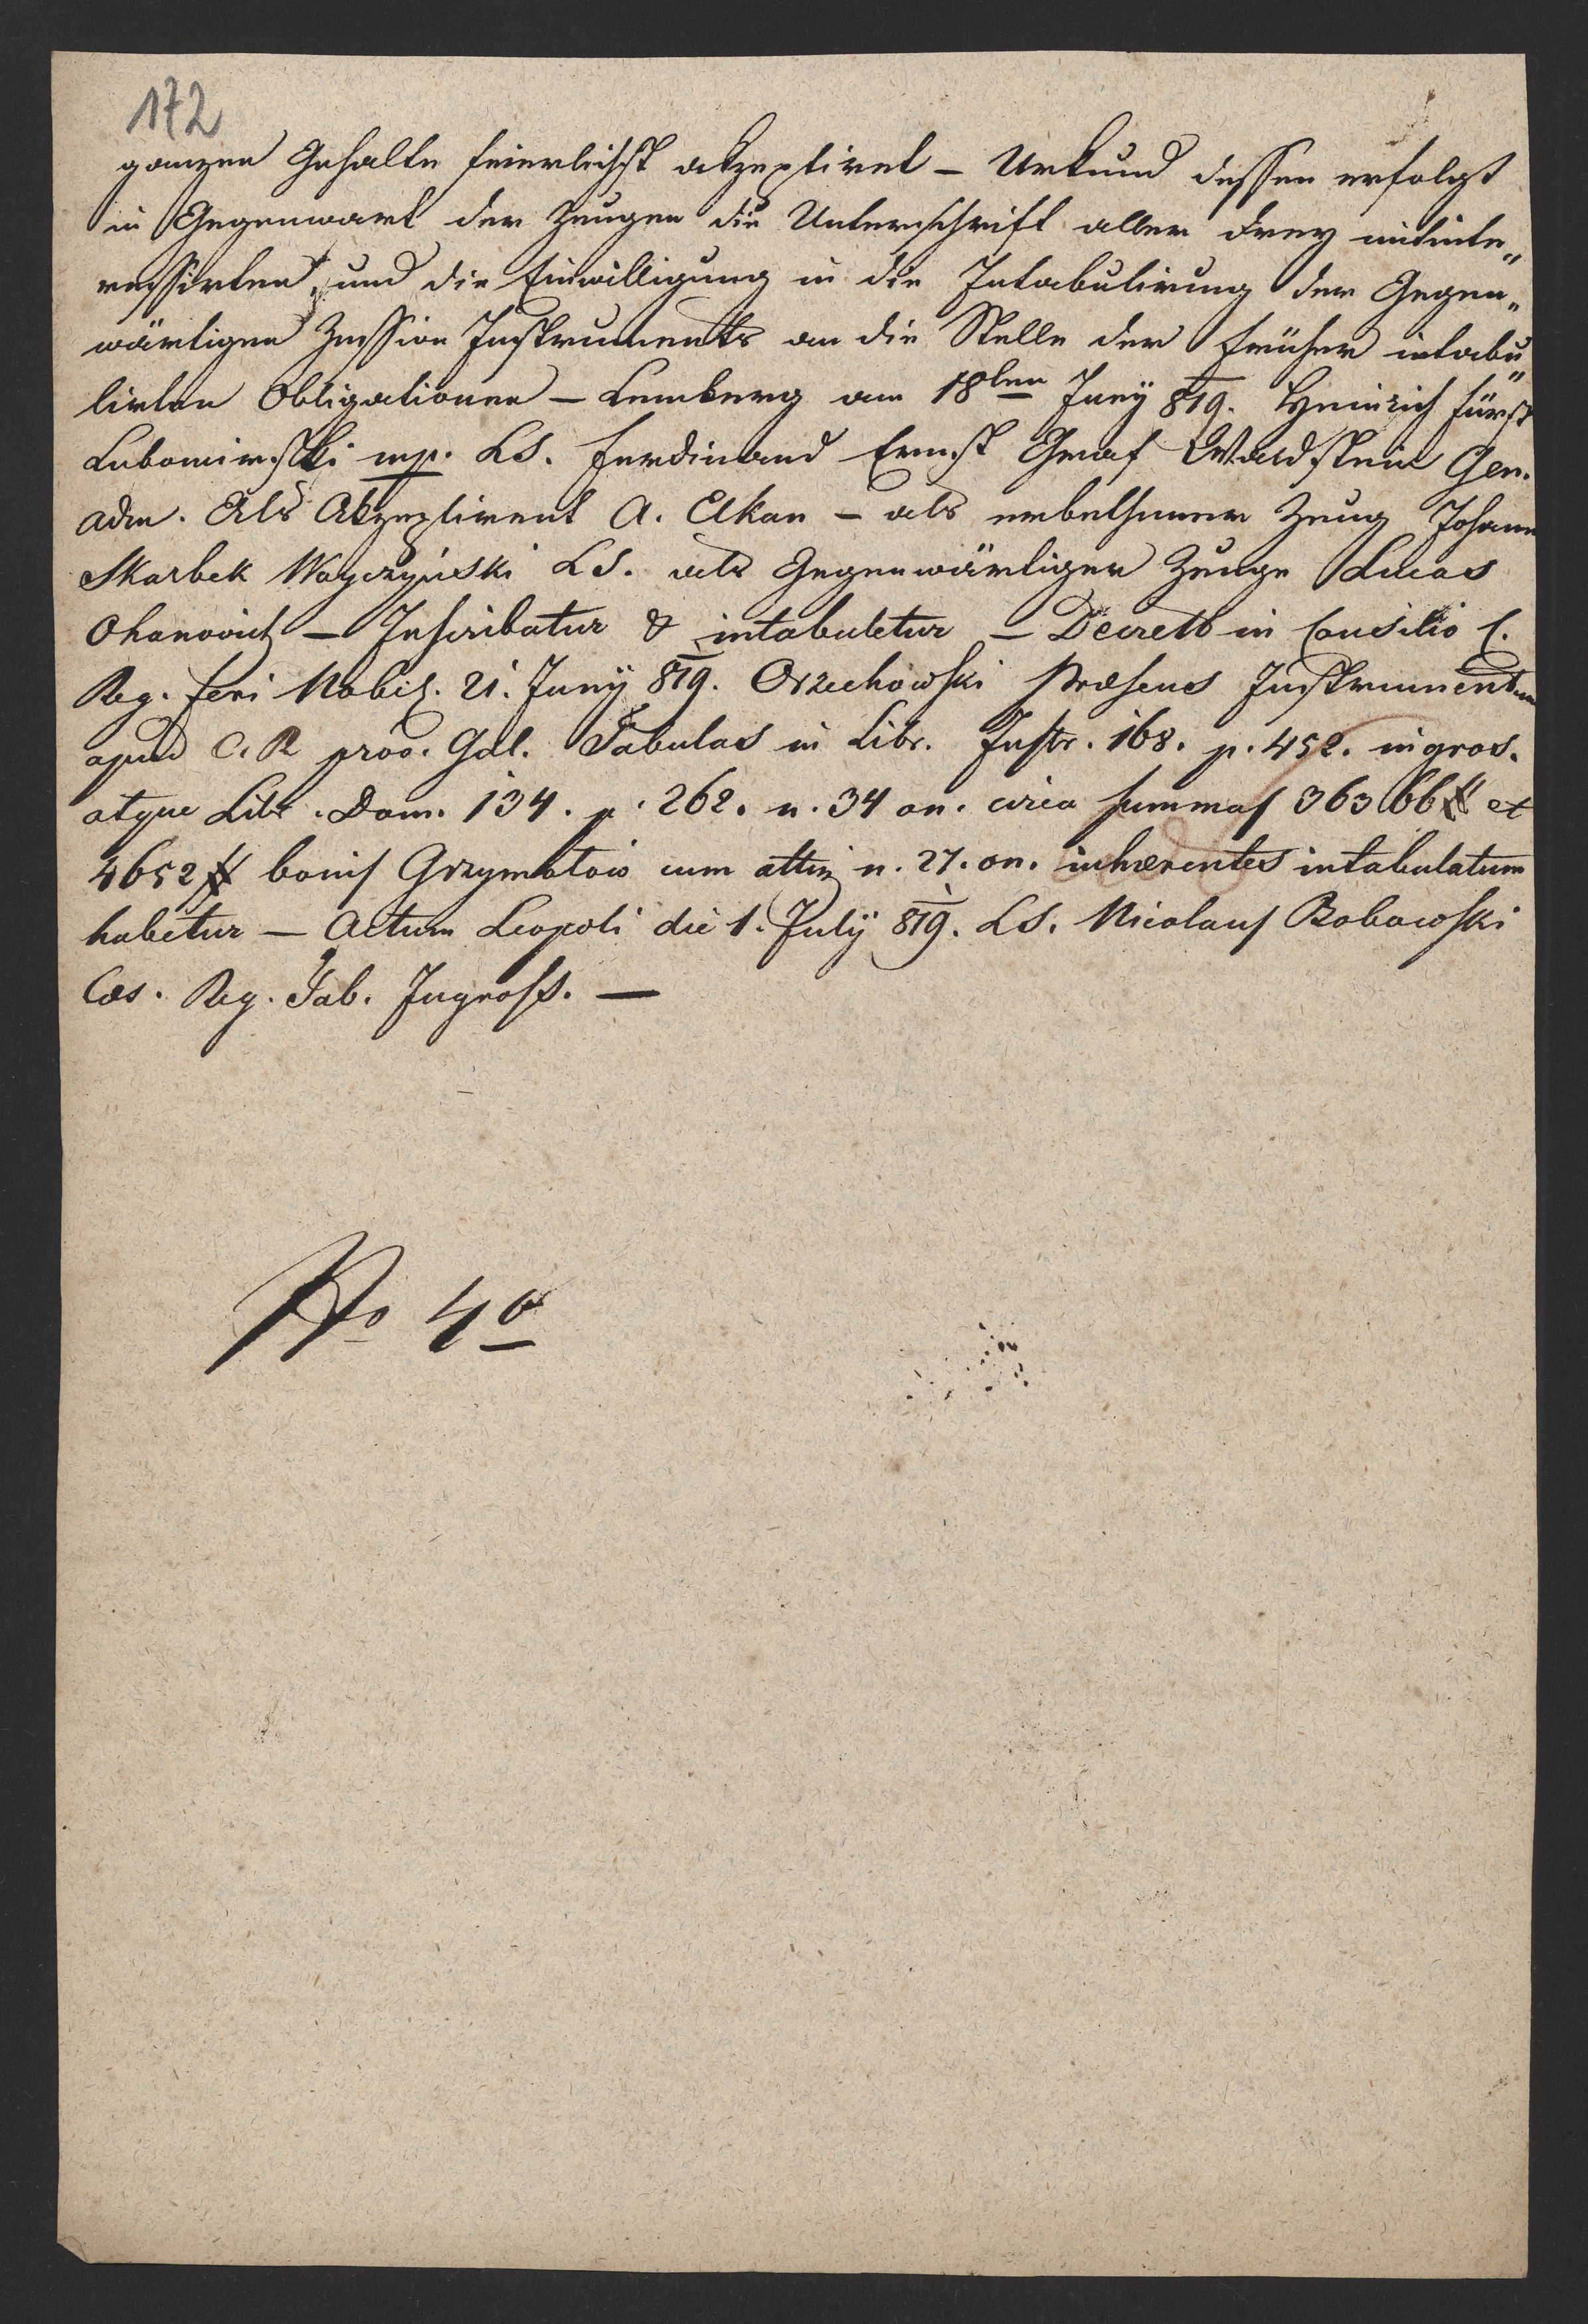 172
ganzen Gehalte feierlichst akzeptiret – Urkund dessen erfolgt
in Gegenwart der Zeugen die Unterschrift aller drey mitinte„
ressirten, und die Einwilligung in die Intabulirung der Gegen„
wärtigen Zession Instruments an die Stelle der früher intabu„
lirten Obligationen – Lemberg am 18ten Juny 819. Heinrich Fürst
Lubomirski mp. LS. Ferdinand Ernst Graf Waldstein Gen.
adm. Als Akzeptirent A. Elkan – als erbethener Zeug Johann
Skarbek LS. als Gegenwärtiger Zeuge Lucas
Ohanovich – Inscribatur & intabuletur – Decreto in Consilio C.
Reg. Fori Nobil. 21. Juny 819. Orzechowski Præsens Instrumentum
apud C. R. prov. Gal. Tabulas in Libr. Instr. 168. p. 452. ingros.
atque Libr. Dom. 134. p. 262. n. 34 on. circa summas 36366 # et
4652 # bonis Grzymałow cum attin n. 27. on. inhærentes intabulatum
habetur – Actum Leopoli die 1. July 819. LS. Nicolaus Bobowski
Cæs. Reg. Tab. Ingross. —
No 40